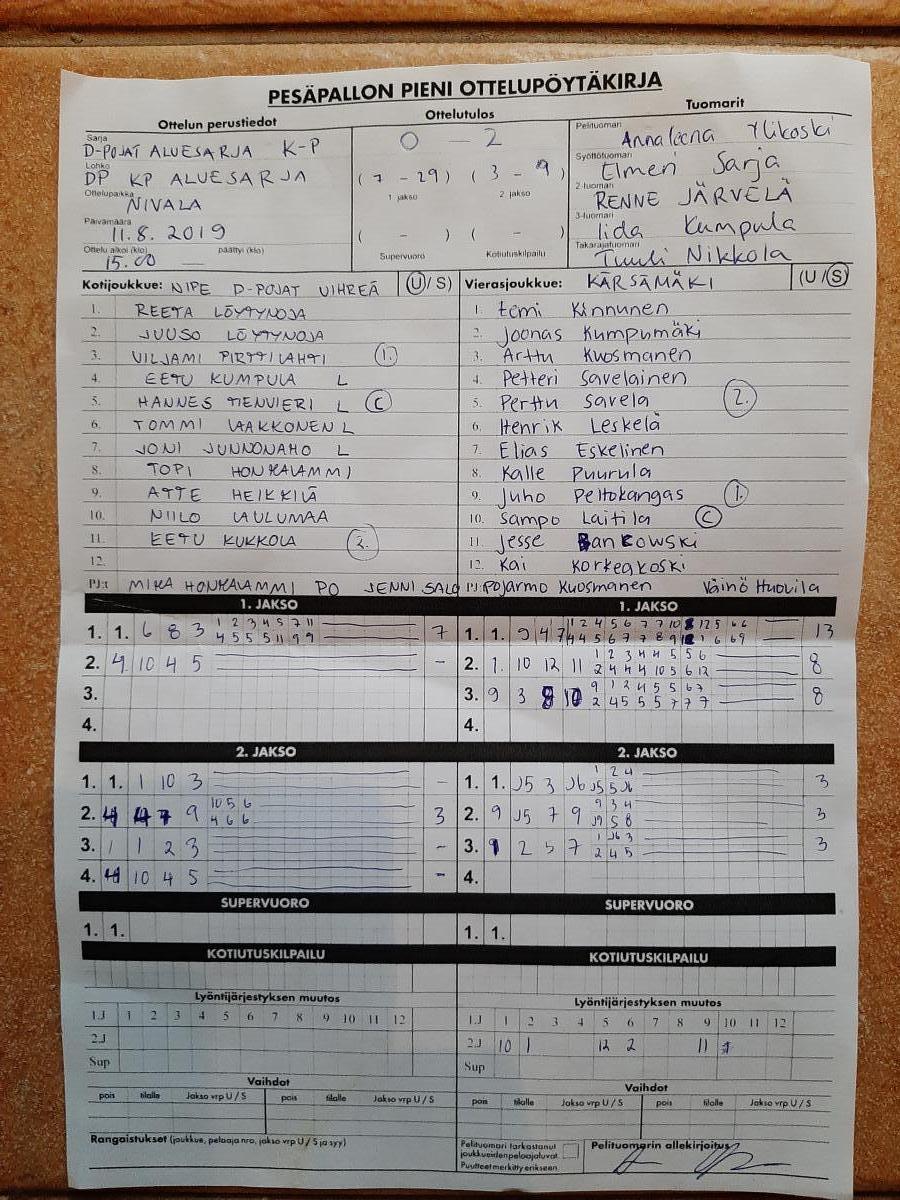 PESÄPALLON PIENI OTTELUPÖYTÄKIRJA
Ottelun perustiedot
Sarja
D-POJAT ALUESARJA K-P
Lohko
DP KP ALUESARJA
Ottelupaikka
NIVALA
Päivämäärä
11.8. 2019
Ottelu alkoi (klo) päättyi (klo)
15.00 —
Ottelutulos
0 - 2
(7 - 29) (3 - 9)
1. jakso 2. jakso
( - ) ( - )
Supervuoro Kotiutuskilpailu
Tuomarit
Pelituomari
Annaleena Ylikoski
Syöttötuomari
Elmeri Sarja
2-tuomari
RENNE JÄRVELÄ
3-tuomari
Iida Kumpula
Takarajatuomari
Tuuli Nikkola
Kotijoukkue: NIPE D-POJAT VIHREÄ (U/S)
1. REETA LÖYTYNOJA
2. JUUSO LÖYTYNOJA
3. VILJAMI PIRTTILAHTI 1.
4. EETU KUMPULA L
5. HANNES TIENVIERI L C
6. TOMMI LAAKKONEN L
7. JONI JUNNONAHO L
8. TOPI HONKALAMMI
9. ATTE HEIKKILÄ
10. NIILO LAULUMAA
11. EETU KUKKOLA 2.
12.
PJ:t MIKA HONKALAMMI PO JENNI SALO
Vierasjoukkue: KÄRSÄMÄKI (U/S)
1. Eemi Kinnunen
2. Joonas Kumpumäki
3. Arttu Kuosmanen
4. Petteri Savelainen
5. Perttu Savela 2.
6. Henrik Leskelä
7. Elias Eskelinen
8. Kalle Puurula
9. Juho Peltokangas 1.
10. Sampo Laitila C
11. Jesse Bankowski
12. Kai Korkeakoski
PJ:t Pojarmo Kuosmanen Väinö Huovila
1. JAKSO
1. 1. 6 8 3 1 2 3 4 5 7 11 7
4 5 5 5 11 9 9
2. 4 10 4 5 -
3.
4.
1. JAKSO
1. 1. 9 4 7 13
2. 1. 10 12 11 1 2 3 4 4 5 5 6 8
2 4 4 4 10 5 6 12
3. 9 3 8 10 9 1 2 4 5 5 6 7 8
2 4 5 5 5 7 7 7
4.
2. JAKSO
1. 1. 1 10 3 -
2. 4 4 7 9 10 5 6 3
4 6 6
3. 1 1 2 3 -
4. 4 10 4 5 -
2. JAKSO
1. 1. J5 3 J6 1 2 4 3
J5 5 J6
2. 9 J5 7 9 9 3 4 3
J9 5 8
3. 9 2 5 7 1 J6 3 3
2 4 5
4.
SUPERVUORO
1. 1.
SUPERVUORO
1. 1.
KOTIUTUSKILPAILU
KOTIUTUSKILPAILU
Lyöntijärjestyksen muutos
1.J 1 2 3 4 5 6 7 8 9 10 11 12
2.J
Sup
Lyöntijärjestyksen muutos
1.J 1 2 3 4 5 6 7 8 9 10 11 12
2.J 10 1 12 2 11
Sup
Vaihdot
pois tilalle Jakso vrp U / S pois tilalle Jakso vrp U / S
Vaihdot
pois tilalle Jakso vrp U / S pois tilalle Jakso vrp U / S
Rangaistukset (joukkue, pelaaja nro, jakso vrp U / S ja syy)
Pelituomari tarkastanut
joukkueiden pelaajaluvat.
Puutteet merkitty erikseen.
Pelituomarin allekirjoitus